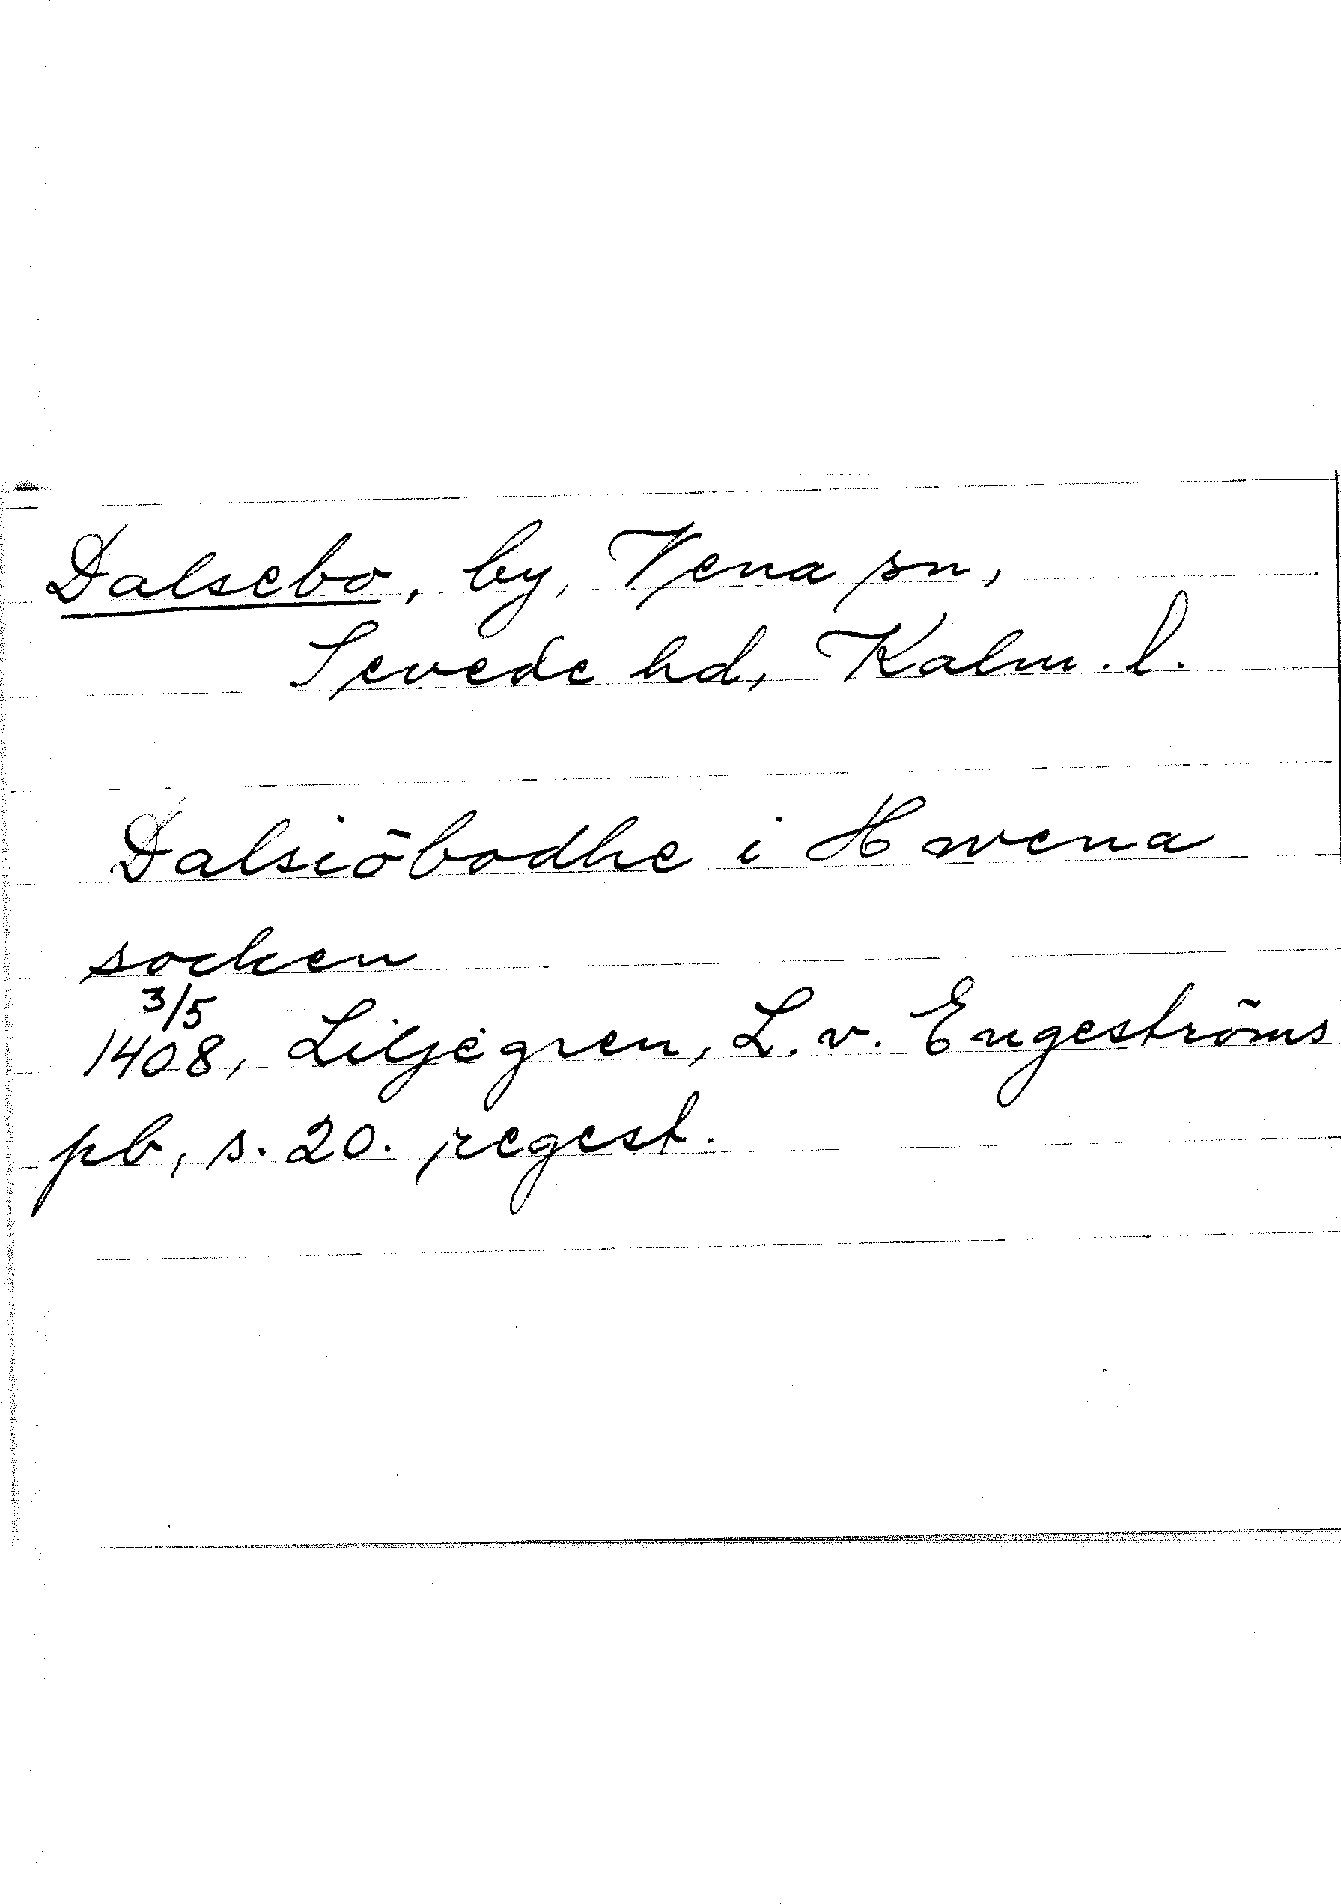 Dalsebo, by, Vena sn,
Sevede hd, Kalm. l.
Dalsiöbodhe i Hwena
socken
3/5
1408, Liljegren, L. v. Engeströms
pb, s. 20. regest.